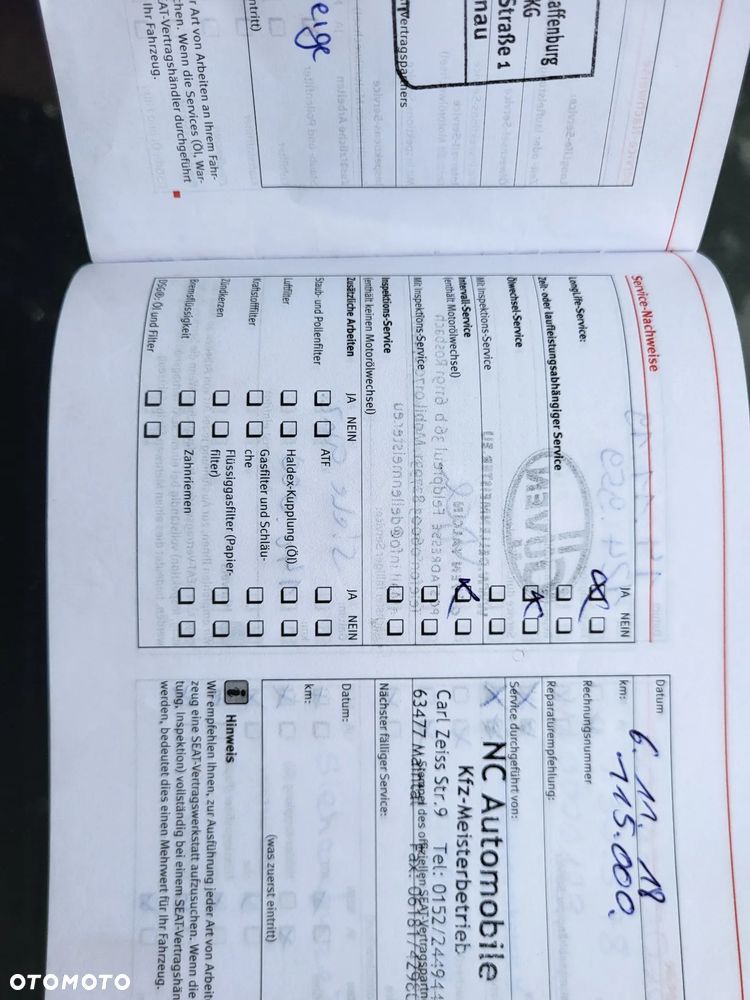 affenburg
KG
Straße 1
nau
Vertragspartners
eige
ntritt)
r Art von Arbeiten an Ihrem Fahr-
chen. Wenn die Services (Öl, War-
AT-Vertragshändler durchgeführt
Ihr Fahrzeug.
Service-Nachweise
JA NEIN
LongLife-Service:
Zeit- oder laufleistungsabhängiger Service
Ölwechsel-Service
Mit Inspektions-Service
Intervall-Service
(enthält Motorölwechsel)
Mit Inspektions-Service
Inspektions-Service
(enthält keinen Motorölwechsel)
Zusätzliche Arbeiten JA NEIN JA NEIN
Staub- und Pollenfilter ATF
Luftfilter Haldex-Kupplung (Öl)
Kraftstofffilter Gasfilter und Schläu-
che
Zündkerzen Flüssiggasfilter (Papier-
filter)
Bremsflüssigkeit Zahnriemen
DSG®, Öl und Filter
Datum 6. 11. 18
km: 115.000.
Rechnungsnummer
Reparaturempfehlung:
Service durchgeführt von:
NC Automobile
Kfz-Meisterbetrieb
Carl Zeiss Str.9 Tel: 0152/24494
Stempel des offiziellen SEAT-Vertragspartn
63477 Maintal Fax: 06181/42980
Nächster fälliger Service:
Datum:
km:
(was zuerst eintritt)
Hinweis
Wir empfehlen Ihnen, zur Ausführung jeder Art von Arbeit
zeug eine SEAT-Vertragswerkstatt aufzusuchen. Wenn die
tung, Inspektion) vollständig bei einem SEAT-Vertragshän
werden, bedeutet dies einen Mehrwert für Ihr Fahrzeug.
OTOMOTO